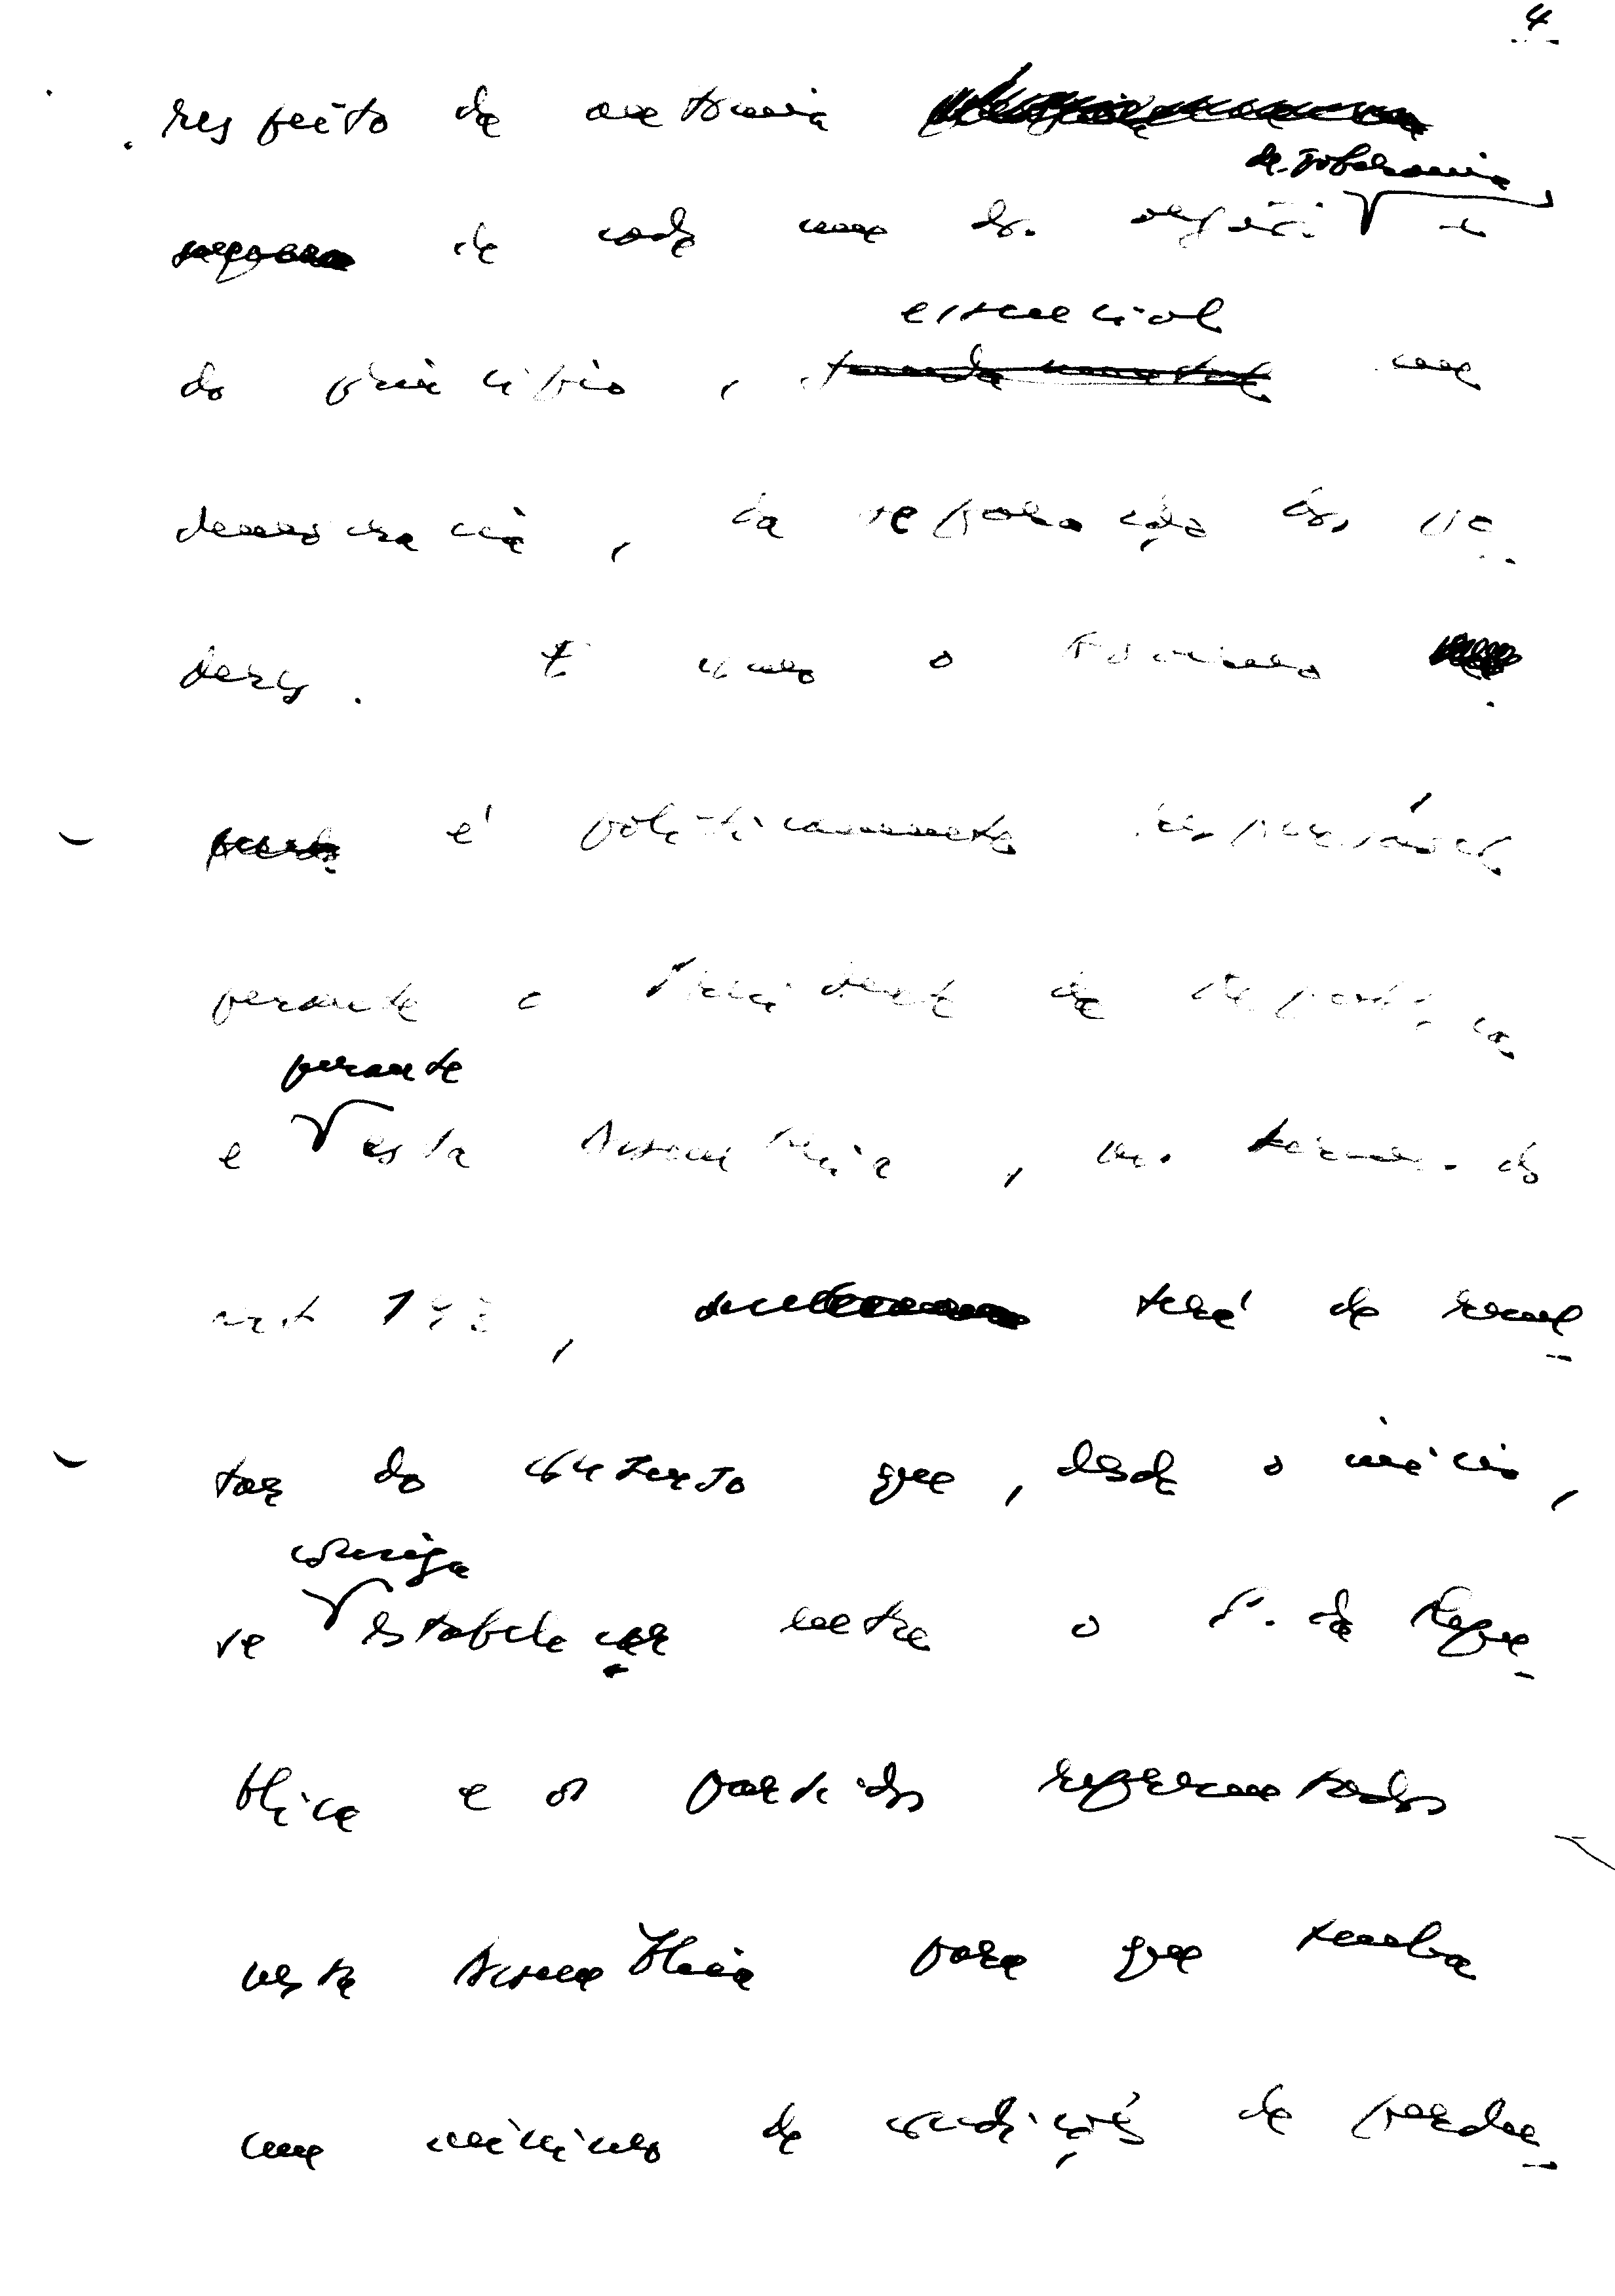 4
respeito da autonomia
de soberania
de cada um dos orgãos e
essencial
do princípio, numa
democracia, da separação dos po-
deres. E como o Governo
é politicamente responsável
perante o Presidente da República
perante
e esta Assembleia, nos termos do
art 193, terá de resul-
tar do consenso que, desde o início,
consiga
se estabelecer entre o P. da Repu-
blica e os partidos representados
nesta Assembleia para que tenha
um mínimo de condições de perdu-